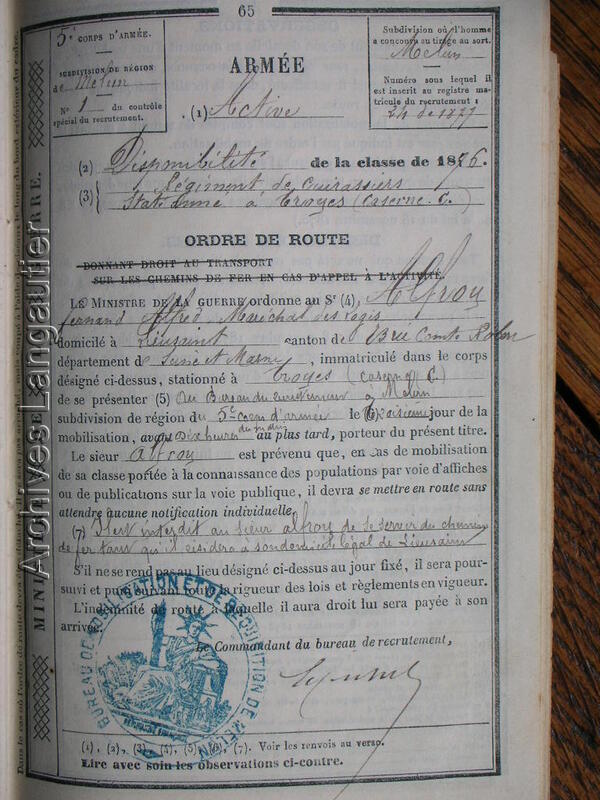 65
5e CORPS D'ARMÉE.
SUBDIVISION DE RÉGION
de Melun
N° 1 du contrôle
spécial du recrutement.
ARMÉE
(1) Active
Subdivision où l'homme
a concouru au tirage au sort.
Melun
Numéro sous lequel il
est inscrit au registre ma-
tricule du recrutement :
24 de 1877
(2) Disponibilité de la classe de 1876.
(3) Régiment de Cuirassiers
Stationné à Troyes (Caserne C.)
ORDRE DE ROUTE
DONNANT DROIT AU TRANSPORT
SUR LES CHEMINS DE FER EN CAS D'APPEL À L'ACTIVITÉ.
LE MINISTRE DE LA GUERRE ordonne au Sr (4), Alfroy
fernand Alfred Maréchal des Logis
domicilié à Lieusaint canton de Brie Comte Robert
département de Seine et Marne, immatriculé dans le corps
désigné ci-dessus, stationné à Troyes (caserne C.)
de se présenter (5) Au Bureau du recrutement à Melun
subdivision de région du 5e corps d'armée le (6) troisième jour de la
mobilisation, avant dix heures du matin au plus tard, porteur du présent titre.
Le sieur alfroy est prévenu que, en cas de mobilisation
de sa classe portée à la connaissance des populations par voie d'affiches
ou de publications sur la voie publique, il devra se mettre en route sans
attendre aucune notification individuelle.
(7) Il est interdit au sieur alfroy de se servir du chemin
de fer tant qu'il résidera à son domicile légal de Lieusaint
S'il ne se rend pas au lieu désigné ci-dessus au jour fixé, il sera pour-
suivi et puni suivant toute la rigueur des lois et règlements en vigueur.
L'indemnité de route à laquelle il aura droit lui sera payée à son
arrivée.
Le Commandant du bureau de recrutement,
BUREAU DE MOBILISATION ET DE RÉQUISITION DE MELUN
(1), (2), (3), (4), (5), (6), (7). Voir les renvois au verso.
Lire avec soin les observations ci-contre.
Archives Langautier